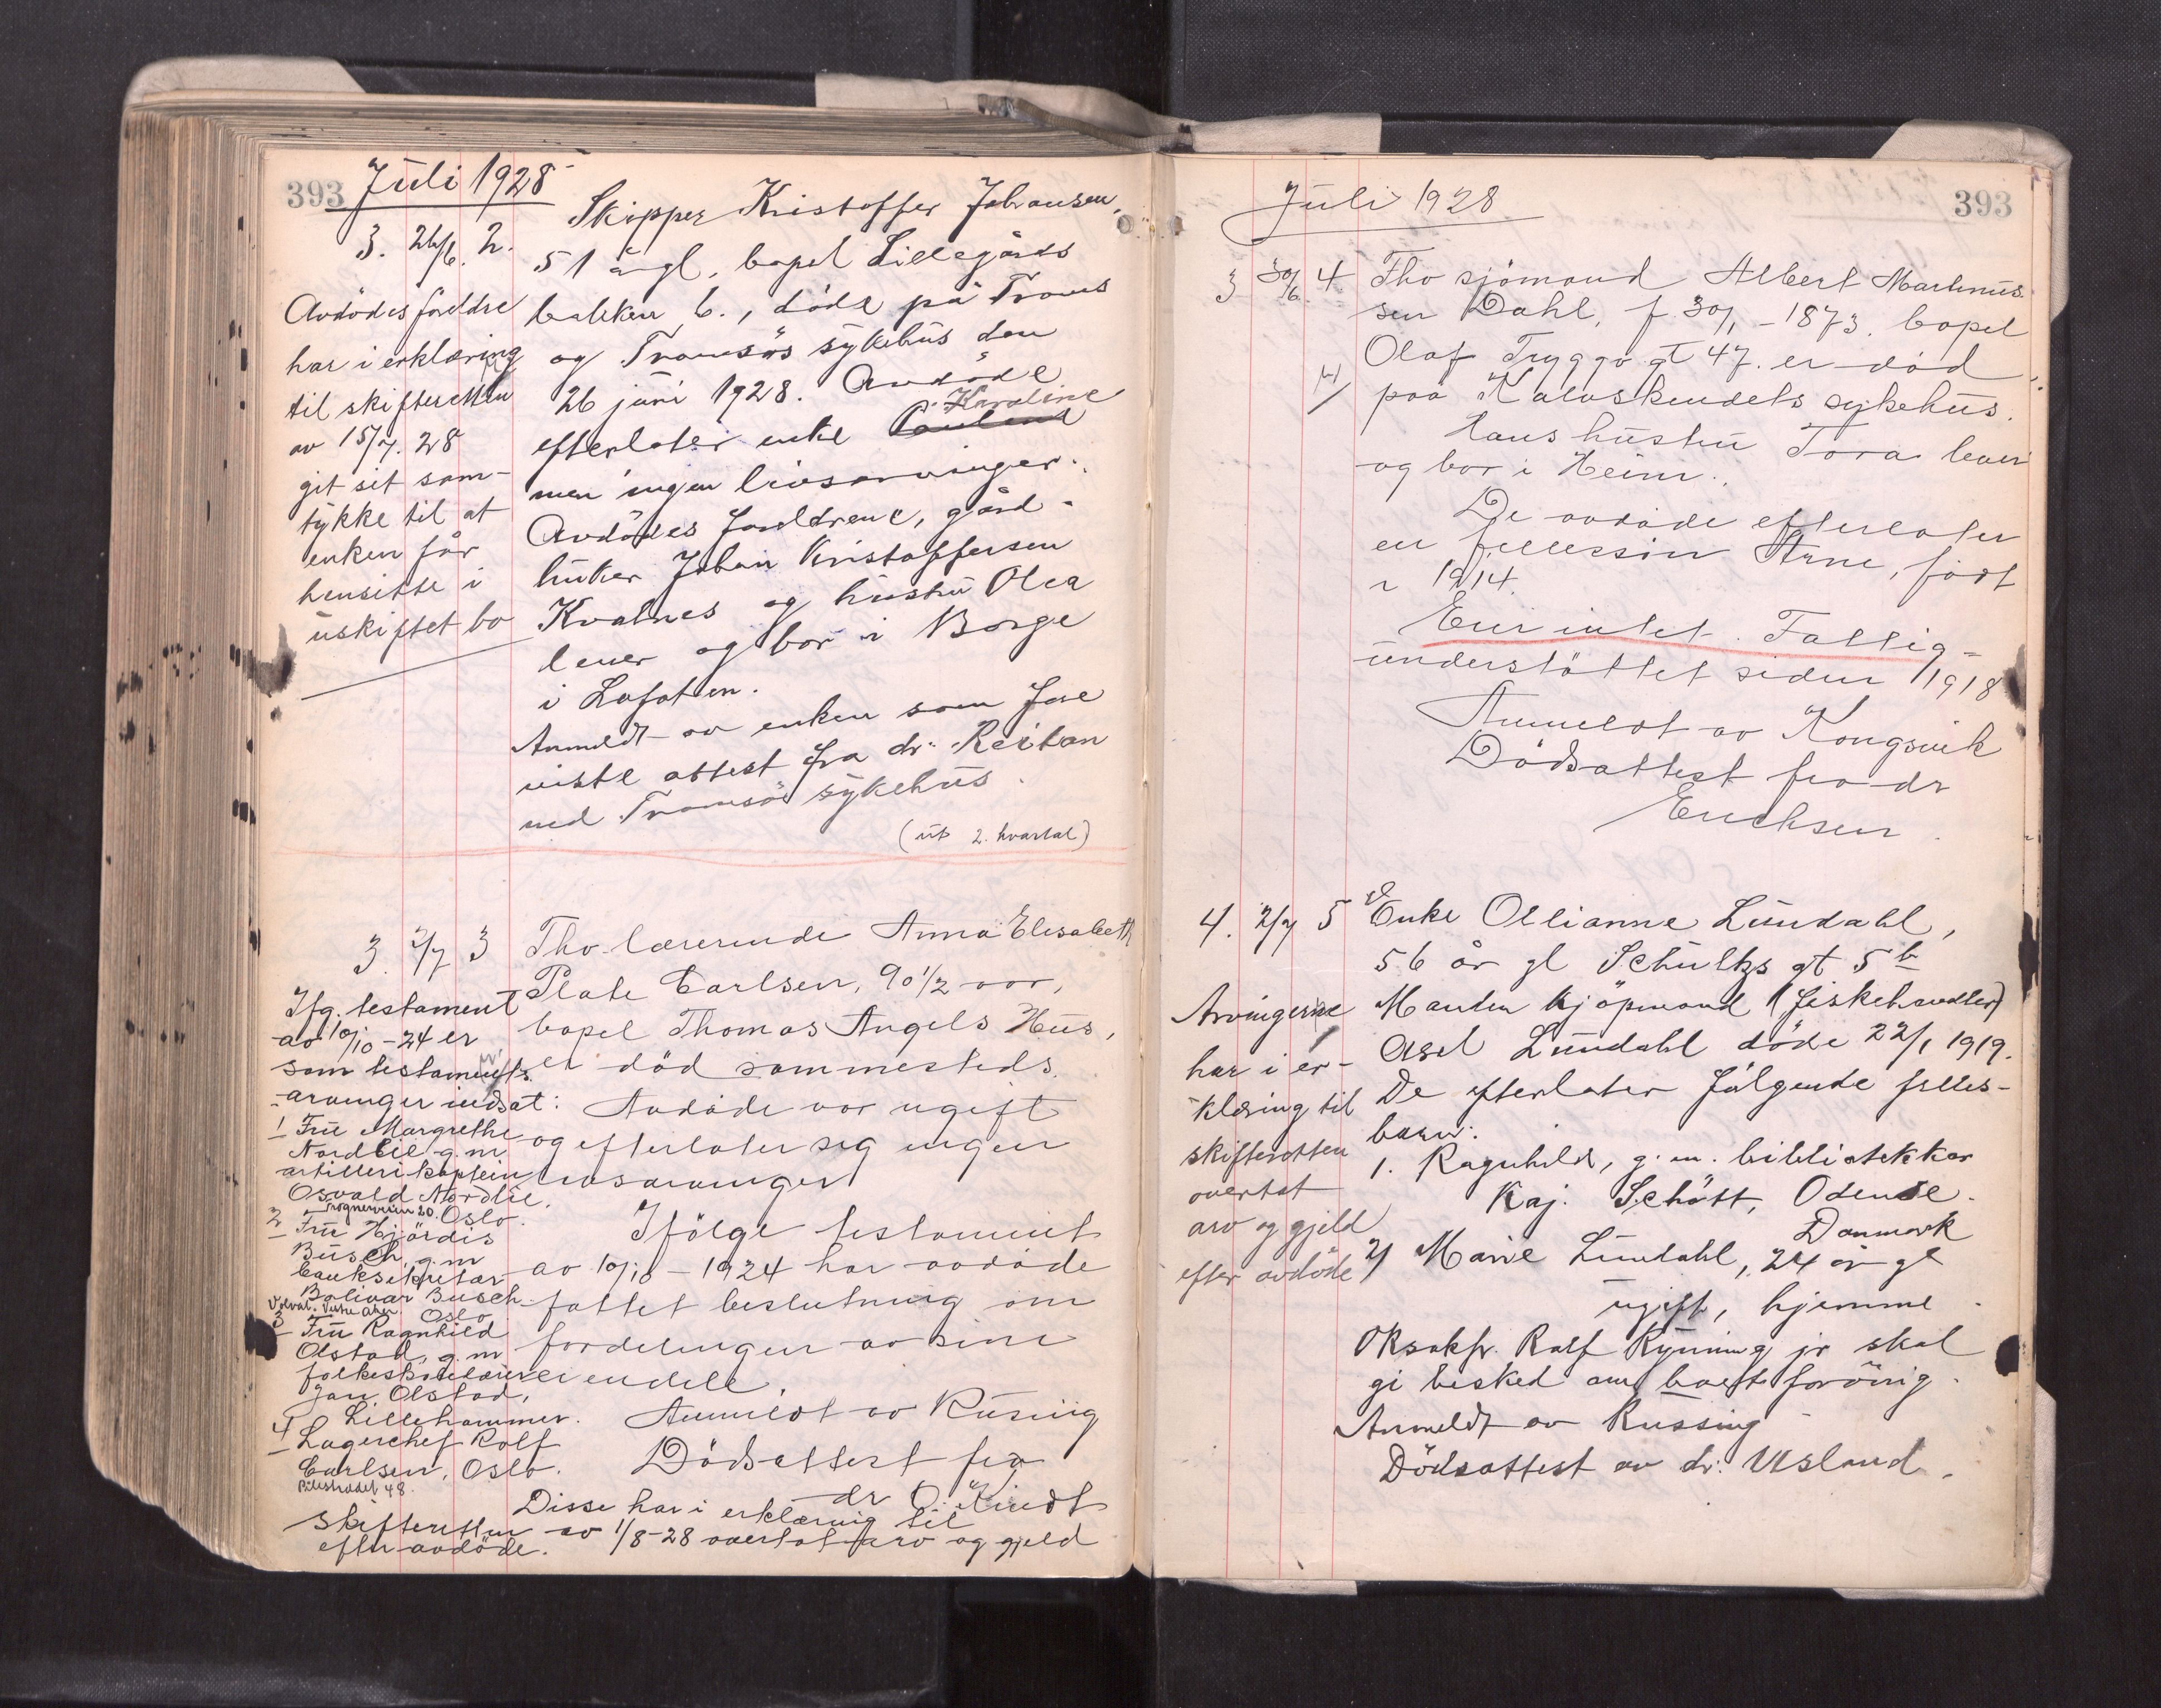 393 Juli 1928
3. 26/6. 2.
Avdødes foreldre
har i erklæring
til skifteretten
av 15/7. 28
git sit sam-
tykke til at
enken får
hensitte i
uskiftet bo
Skipper Kristoffer Johansen,
51 år gl, bopel Lillegårds
bakken 6., døde på Troms
og Tromsøs sykehus den
26 juni 1928. Avdøde
Karoline
efterlater enke
men ingen livsarvinger.
Avdødes foreldrene, gård-
bruker Johan Kristoffersen
Kvalnes og hustru Olea
lever og bor i Borge
i Lofoten.
Anmeldt av enken som fore
viste attest fra dr. Reitan
ved Tromsø sykehus.
(ut 2. kvartal)
3. 2/7 3
Ifg. testament
av 10/10-24 er
som testaments-
arvinger indsat:
1 Fru Margrethe
Nordlie g. m.
artillerikaptein
Osvald Nordlie,
Oslo.
2 Fru Hjördis
Busch, g. m
banksekretær
Bolivar Busch
Oslo
3 Fru Ragnhild
Olstad, g. m
folkeskolelærer
Jan Olstad,
Lillehammer.
4 Lagerchef Rolf
Carlsen, Oslo.
Pilestrædet 48.
Thv. lærerinde Anna Elisabeth
Plate Carlsen, 90 1/2 aar,
bopel Thomas Angels Hus,
er død sammesteds.
Avdøde var ugift
og efterlater sig ingen
livsarvinger
Ifølge testament
av 10/10 - 1924 har avdøde
fattet beslutning om
fordelingen av sine
eiendele.
Anmeldt av Rüssing
Dødsattest fra
dr O. Kindt
Disse har i erklæring til
skifteretten av 1/8-28 overtat arv og gjeld
efter avdøde.
Juli 1928 393
3 30/6. 4. Thv sjömand Albert Martinus-
sen Dahl, f 30/1 - 1873. bopel
Olaf Tryggv gt 47. er død
paa Kalvskindets sykehus.
Hans hustru Tora lever
og bor i Heim.
De avdøde efterlater
en fellessøn Arne, født
i 1914.
Eier intet. Fattig-
understøttet siden 1918
Anmeldt av Kongsvik
Dødsattest fra dr
Erichsen.
4. 2/7 5 Enke Ollianne Lundahl,
56 år gl Schultzs gt 5 b
Manden kjøpmand (fiskehandler)
Axel Lundahl döde 22/1 1919.
De efterlater fölgende felles-
barn:
1. Ragnhild, g. m. bibliotekkar
Kaj. Schött, Odense.
Danmark
2/ Marie Lundahl, 24 år gl
ugift, hjemme.
Oksakfr. Rolf Ryning jr skal
gi besked om boet forövrig.
Anmeldt av Russing
Dödsattest av dr. Usland.
Arvingerne
har i er-
klæring til
skifteretten
overtat
arv og gjeld
efter avdöde